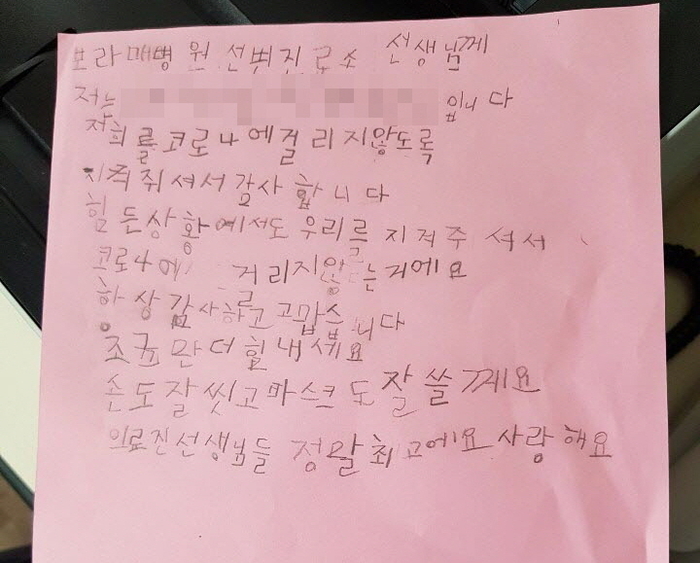 보라매병원 선별진료소 선생님께
저는 입니다
저희를 코로나에걸리지않도록
지켜줘셔서 감사합니다
힘든상황에서도 우리를 지켜주셔서
코로나에 거리지않는거에요
항상 감사하고 고맙습니다
조금만 더 힘내세요
손도잘씻고마스크도 잘쓸께요
의료진선생님들 정말최고에요 사랑해요